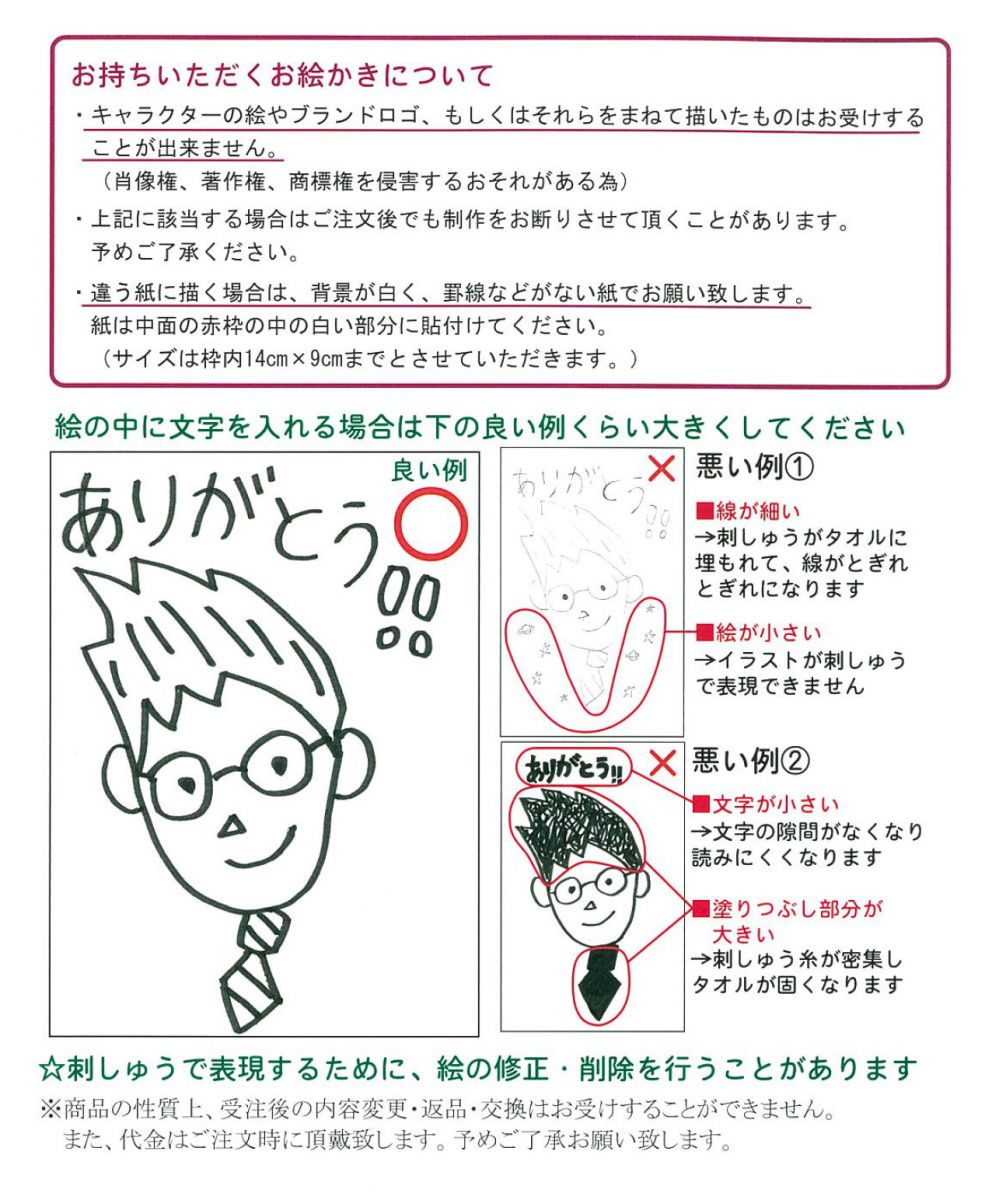 お持ちいただくお絵かきについて
・キャラクターの絵やブランドロゴ、もしくはそれらをまねて描いたものはお受けする
ことが出来ません。
（肖像権、著作権、商標権を侵害するおそれがある為）
・上記に該当する場合はご注文後でも制作をお断りさせて頂くことがあります。
予めご了承ください。
・違う紙に描く場合は、背景が白く、罫線などがない紙でお願い致します。
紙は中面の赤枠の中の白い部分に貼付けてください。
（サイズは枠内14cm×9cmまでとさせていただきます。）
絵の中に文字を入れる場合は下の良い例くらい大きくしてください
良い例
ありがとう!!
ありがとう!!
悪い例①
■線が細い
→刺しゅうがタオルに
埋もれて、線がとぎれ
とぎれになります
■絵が小さい
→イラストが刺しゅう
で表現できません
ありがとう!!
悪い例②
■文字が小さい
→文字の隙間がなくなり
読みにくくなります
■塗りつぶし部分が
大きい
→刺しゅう糸が密集し
タオルが固くなります
☆刺しゅうで表現するために、絵の修正・削除を行うことがあります
※商品の性質上、受注後の内容変更・返品・交換はお受けすることができません。
また、代金はご注文時に頂戴致します。予めご了承お願い致します。